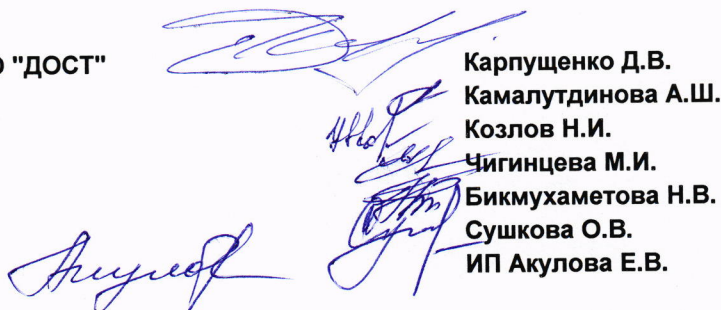 О "ДОСТ"
Карпущенко Д.В.
Камалутдинова А.Ш.
Козлов Н.И.
Чигинцева М.И.
Бикмухаметова Н.В.
Сушкова О.В.
ИП Акулова Е.В.